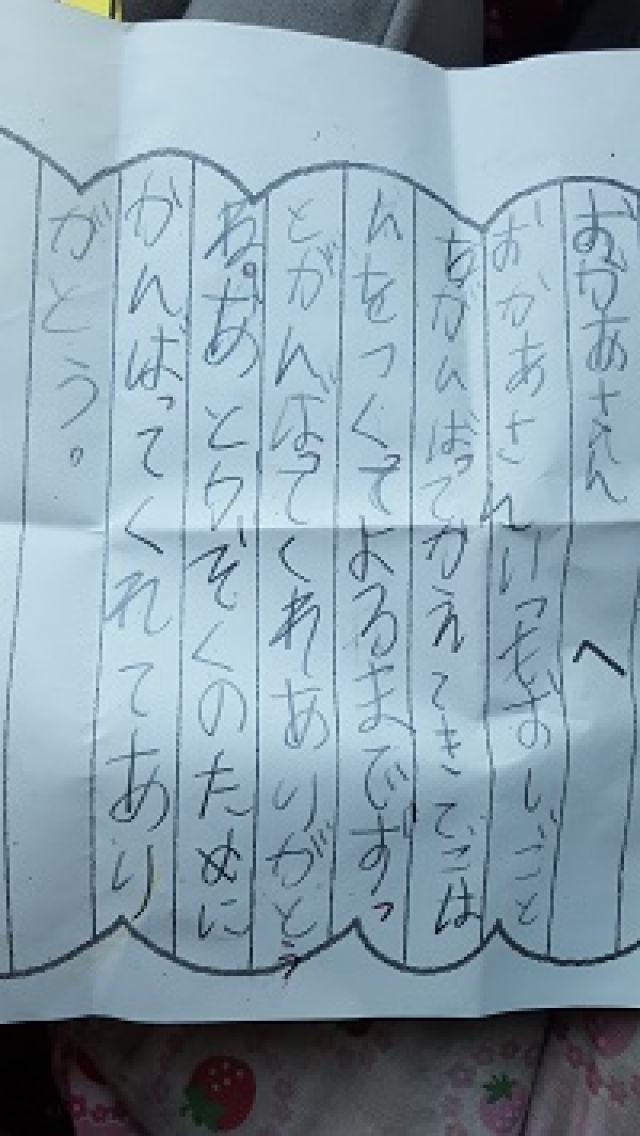 おかあさんへ
おかあさんいつもおしごと
ちがんばってかえてきてごは
んをつくてよるまでずっ
とがんばてくれありがとう
あとかぞくのために
がんばってくれてあり
がとう。